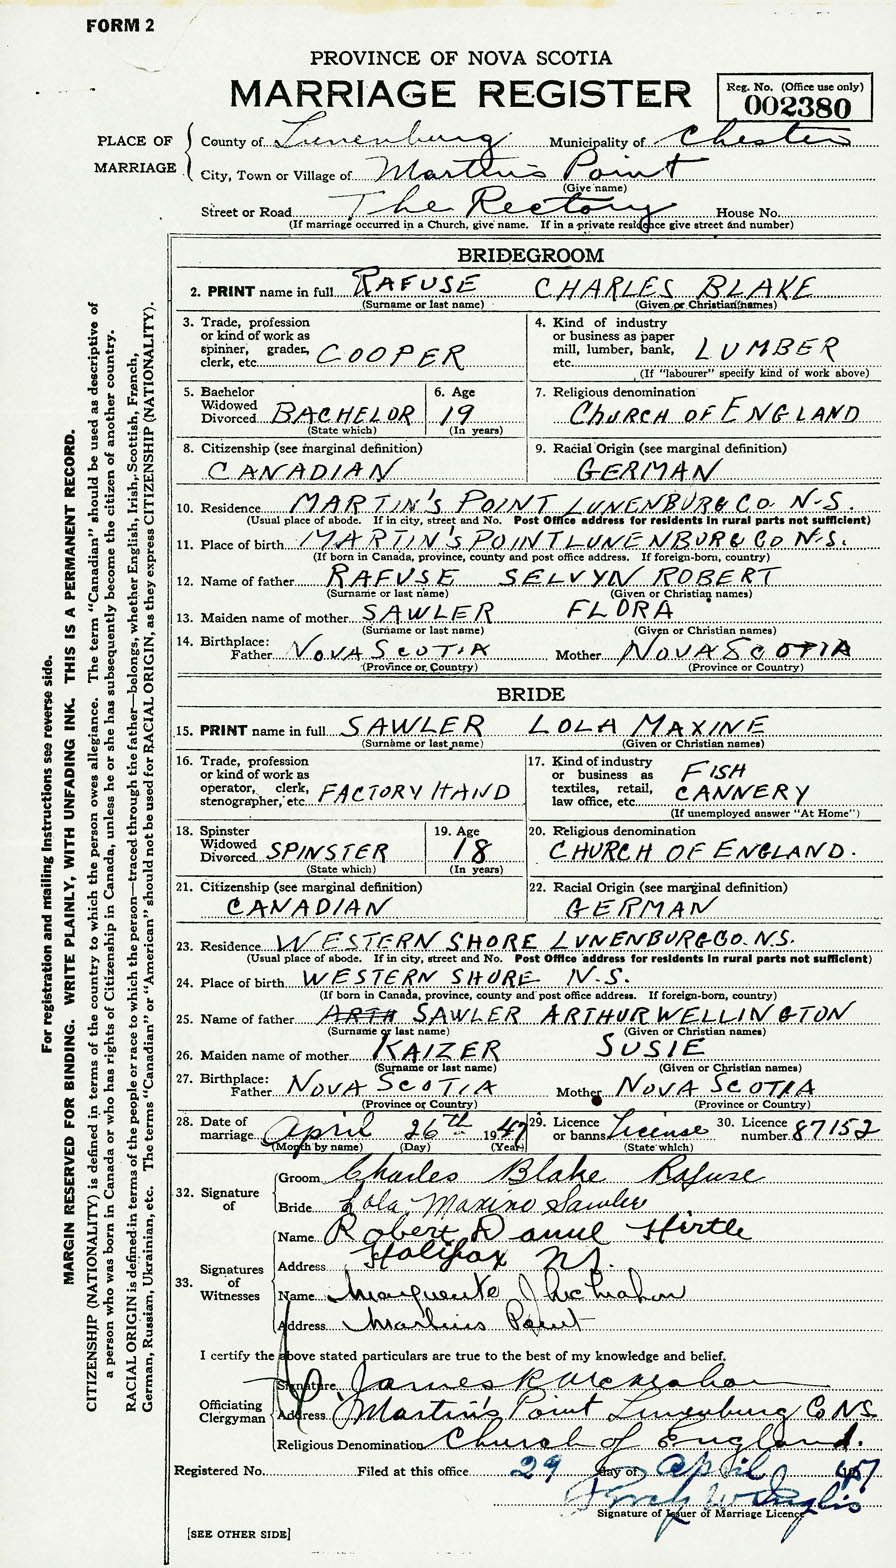 FORM 2
PROVINCE OF NOVA SCOTIA
MARRIAGE REGISTER
Reg. No. (Office use only)
002380
PLACE OF MARRIAGE
County of Lunenburg Municipality of Chester
City, Town or Village of Martin's Point
(Give name)
Street or Road The Rectory House No.
(If marriage occurred in a Church, give name. If in a private residence give street and number)
BRIDEGROOM
2. PRINT name in full RAFUSE CHARLES BLAKE
(Surname or last name) (Given or Christian names)
3. Trade, profession
or kind of work as
spinner, grader,
clerk, etc. COOPER
4. Kind of industry
or business as paper
mill, lumber, bank,
etc. LUMBER
(If "labourer" specify kind of work above)
5. Bachelor
Widowed
Divorced BACHELOR
(State which)
6. Age
19
(In years)
7. Religious denomination
CHURCH OF ENGLAND
8. Citizenship (see marginal definition)
CANADIAN
9. Racial Origin (see marginal definition)
GERMAN
10. Residence MARTIN'S POINT LUNENBURG CO. N.S.
(Usual place of abode. If in city, street and No. Post Office address for residents in rural parts not sufficient)
11. Place of birth MARTIN'S POINT LUNENBURG CO N.S.
(If born in Canada, province, county and post office address. If foreign-born, country)
12. Name of father RAFUSE SELVYN ROBERT
(Surname or last name) (Given or Christian names)
13. Maiden name of mother SAWLER FLORA
(Surname or last name) (Given or Christian names)
14. Birthplace:
Father NOVA SCOTIA Mother NOVA SCOTIA
(Province or Country) (Province or Country)
BRIDE
15. PRINT name in full SAWLER LOLA MAXINE
(Surname or last name) (Given or Christian names)
16. Trade, profession
or kind of work as
operator, clerk,
stenographer, etc. FACTORY HAND
17. Kind of industry
or business as
textiles, retail,
law office, etc. FISH CANNERY
(If unemployed answer "At Home")
18. Spinster
Widowed
Divorced SPINSTER
(State which)
19. Age
18
(In years)
20. Religious denomination
CHURCH OF ENGLAND.
21. Citizenship (see marginal definition)
CANADIAN
22. Racial Origin (see marginal definition)
GERMAN
23. Residence WESTERN SHORE LUNENBURG CO. N.S.
(Usual place of abode. If in city, street and No. Post Office address for residents in rural parts not sufficient)
24. Place of birth WESTERN SHORE N.S.
(If born in Canada, province, county and post office address. If foreign-born, country)
25. Name of father ARTH SAWLER ARTHUR WELLINGTON
(Surname or last name) (Given or Christian names)
26. Maiden name of mother KAIZER SUSIE
(Surname or last name) (Given or Christian names)
27. Birthplace:
Father NOVA SCOTIA Mother NOVA SCOTIA
(Province or Country) (Province or Country)
28. Date of
marriage April 26th 1947
(Month by name) (Day) (Year)
29. Licence
or banns License
(State which)
30. Licence
number 87152
32. Signature of
Groom Charles Blake Rafuse
Bride Lola Maxine Sawler
33. Signatures of Witnesses
Name Robert Hirtle
Address Halifax NS.
Name Marguerite J McMahon
Address Martins Point
I certify the above stated particulars are true to the best of my knowledge and belief.
Officiating Clergyman
Signature James R McMahon
Address Martin's Point Lunenburg Co NS
Religious Denomination Church of England.
Registered No. Filed at this office 29 day of April 1947
Signature of Issuer of Marriage Licence
[SEE OTHER SIDE]
For registration and mailing instructions see reverse side.
MARGIN RESERVED FOR BINDING. WRITE PLAINLY, WITH UNFADING INK. THIS IS A PERMANENT RECORD.
CITIZENSHIP (NATIONALITY) is defined in terms of the country to which the person owes allegiance. The term "Canadian" should be used as descriptive of
a person who was born in Canada or who has rights of Citizenship in Canada, unless he or she has subsequently become the citizen of another country.
RACIAL ORIGIN is defined in terms of the people or race to which the person—traced through the father—belongs, whether English, Irish, Scottish, French,
German, Russian, Ukrainian, etc. The terms "Canadian" or "American" should not be used for RACIAL ORIGIN, as they express CITIZENSHIP (NATIONALITY).